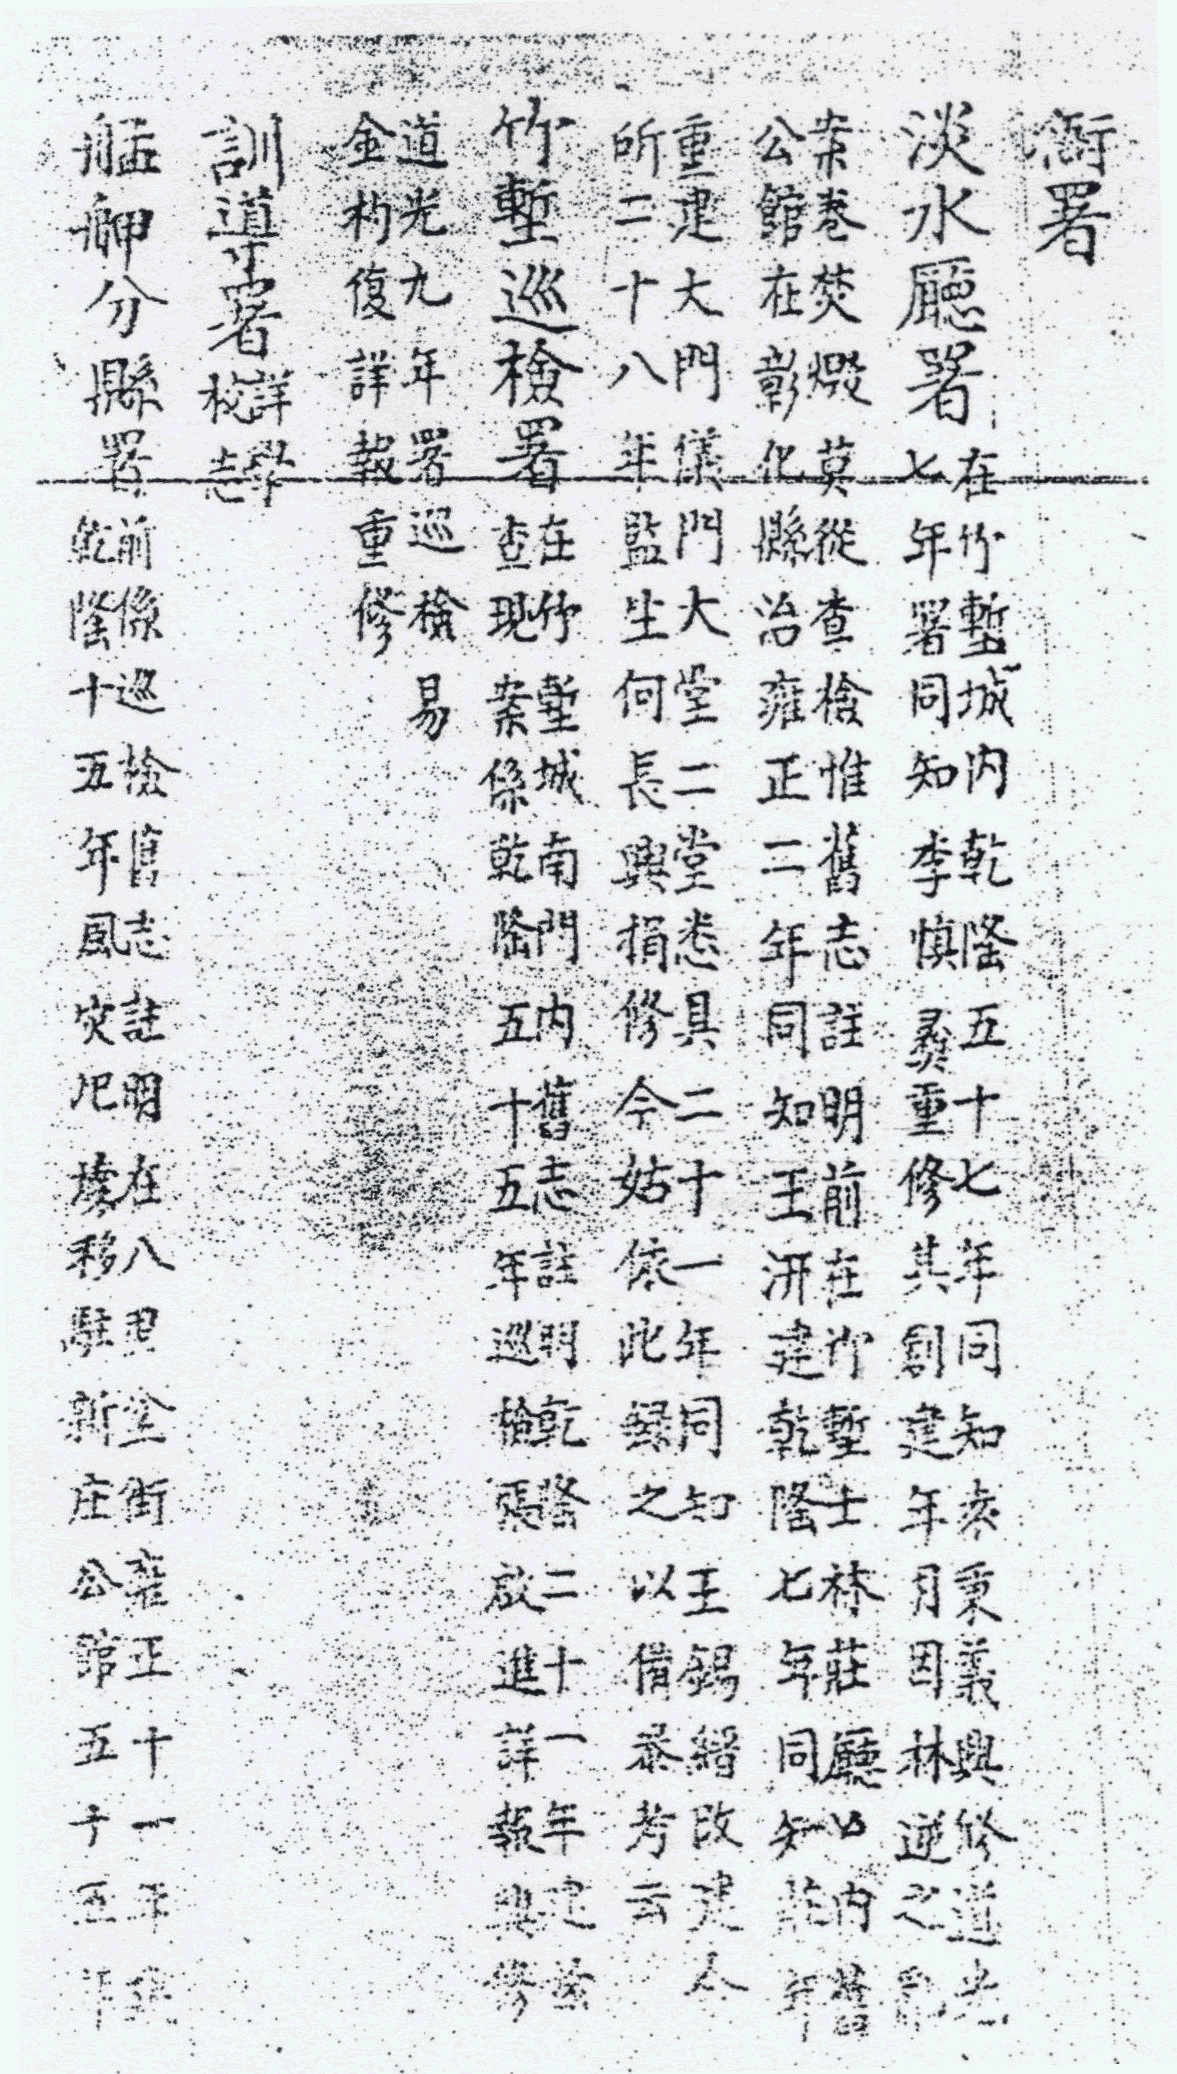 衙署
淡水廳署
在竹塹城內乾隆五十七年同知袁秉義興修道光
七年署同知李慎彝重修其創建年月因林逆之亂
案卷焚燬莫從查檢惟舊志註明前在竹塹士林莊廳內舊
公館在彰化縣治雍正二年同知王汧建乾隆七年同知莊年
重建大門儀門大堂二堂悉具二十一年同知王錫縉改建今
所二十八年監生何長興捐修今姑依此錄之以備恭考云
竹塹巡檢署
在竹塹城南門內舊志註明乾隆二十一年建茲
查現案係乾隆五十五年巡檢張啟進詳報興修
道光九年署巡檢易
金杓復詳報重修
訓導署
詳學
校志
艋舺分縣署
前係巡檢舊志註明在八里坌街雍正十一年
乾隆十五年風災圮壞移駐新庄公館五十五年